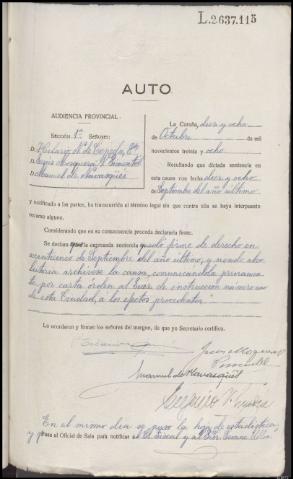 L.2637.115
AUTO
AUDIENCIA PROVINCIAL
Sección 1ª Señores:
D. Hilario Nº de Cepeda, Pte
D. Mosquera Pimentel
D. Manuel de Navasqüés
La Coruña, diez y ocho
de Octubre de mil
novecientos treinta y ocho
Resultando que dictada sentencia en
esta causa con fecha diez y ocho
Septiembre del año último
y notificado a las partes, ha transcurrido el término legal sin que contra ella se haya interpuesto
recurso alguno.
Considerando que es su consecuencia procede declararla firme.
Se declara que la expresada sentencia quedó firme de derecho en
veintinueve de Septiembre del año último, y siendo abso-
lutoria archívese la causa, comunicándolo
por carta órden al Juez de instrucción número uno
de esta Ciudad, a los efectos procedentes.
Lo acordaron y firman los señores del margen, de que yo Secretario certifico.
Manuel de Navasqüés
Pimentel
En el mismo día se puso la hoja de estadística,
y pasa al Oficial de Sala para notificar al Fiscal y al